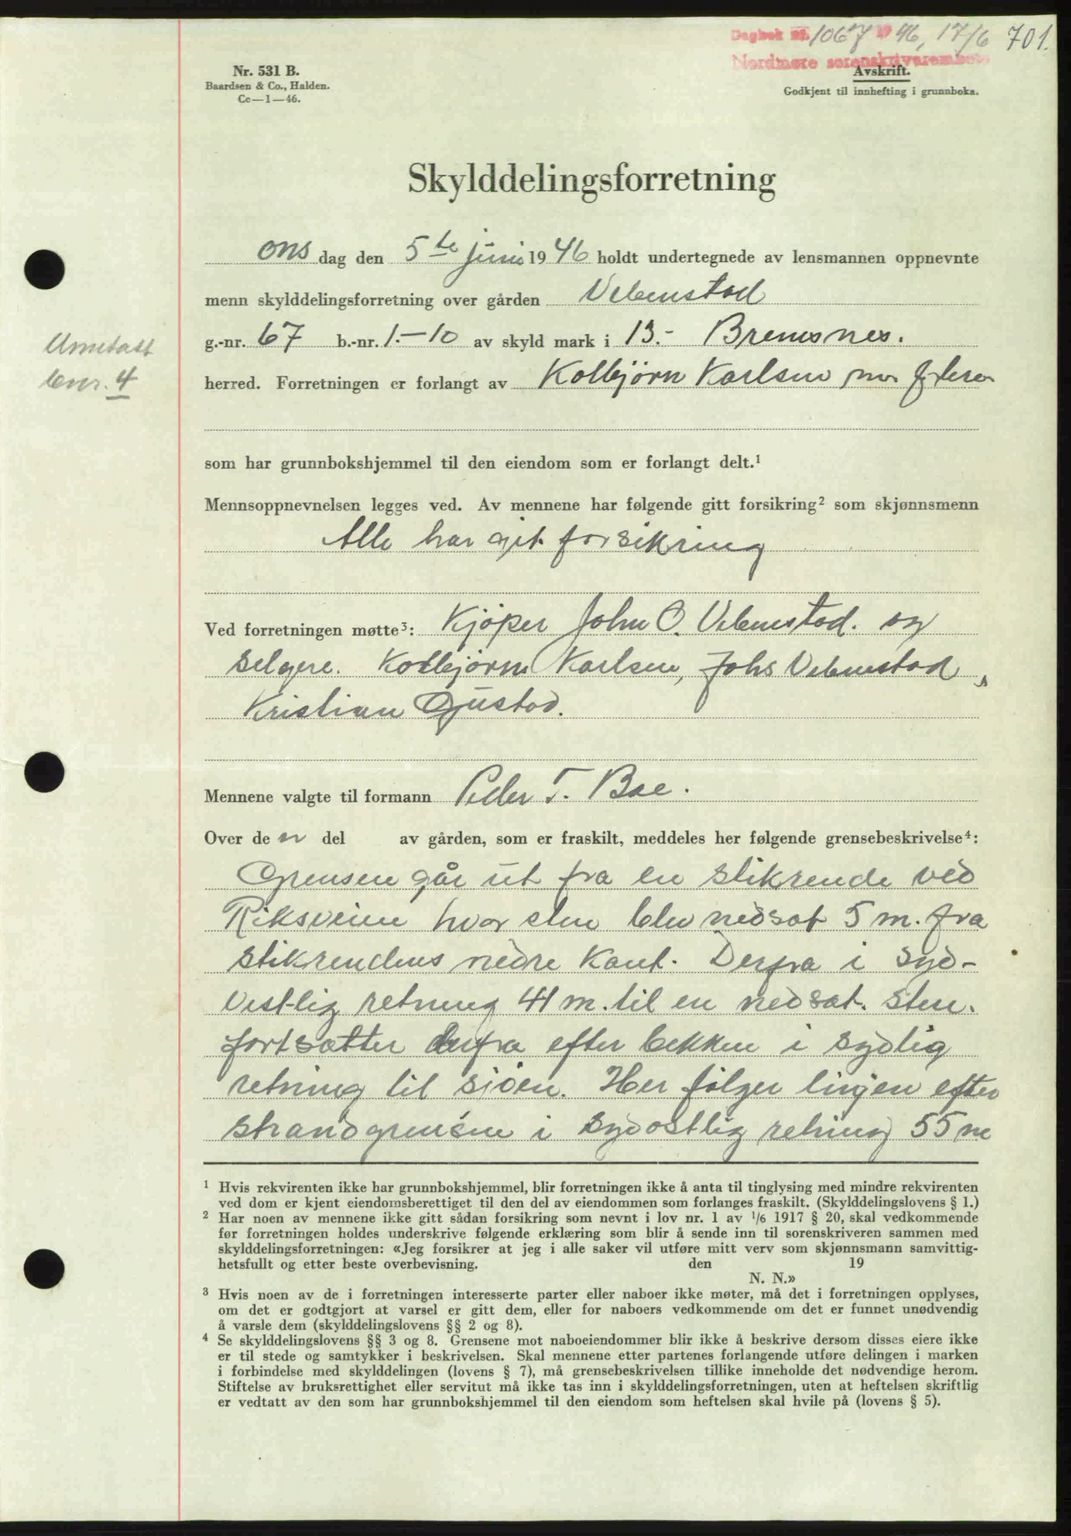 Dagbok nr. 1067 1946, 17/6 701.
Nordmøre sorenskriverembete
Nr. 531 B.
Baardsen & Co., Halden.
Cc—1—46.
Avskrift.
Godkjent til innhefting i grunnboka.
Skylddelingsforretning
ons dag den 5te juni 1946 holdt undertegnede av lensmannen oppnevnte
menn skylddelingsforretning over gården Vebenstad
g.-nr. 67 b.-nr. 1.-10 av skyld mark i 13.- Bremsnes.
herred. Forretningen er forlangt av Kolbjörn Karlsen m. flere
bnr. 4
som har grunnbokshjemmel til den eiendom som er forlangt delt.¹
Mennsoppnevnelsen legges ved. Av mennene har følgende gitt forsikring² som skjønnsmenn
Alle har git forsikring
Ved forretningen møtte³: Kjöper John O. Vebenstad. og
Selgere. Kolbjörn Karlsen, Johs Vebenstad,
Kristian Gustad.
Mennene valgte til formann Peder T. Bae.
Over de n del av gården, som er fraskilt, meddeles her følgende grensebeskrivelse⁴:
Grensen går ut fra en stikrende ved
Riksveien hvor sten blev nedsat 5 m. fra
stikrendens nedre kant. Derfra i syd-
vestlig retning 41 m. til en nedsat sten.
fortsætter derfra efter bekken i sydlig
retning til sjöen. Her fölger linjen efter
strandgrensen i sydostlig retning 55 m
¹ Hvis rekvirenten ikke har grunnbokshjemmel, blir forretningen ikke å anta til tinglysing med mindre rekvirenten
ved dom er kjent eiendomsberettiget til den del av eiendommen som forlanges fraskilt. (Skylddelingslovens § 1.)
² Har noen av mennene ikke gitt sådan forsikring som nevnt i lov nr. 1 av ¹/6 1917 § 20, skal vedkommende
før forretningen holdes underskrive følgende erklæring som blir å sende inn til sorenskriveren sammen med
skylddelingsforretningen: «Jeg forsikrer at jeg i alle saker vil utføre mitt verv som skjønnsmann samvittig-
hetsfullt og etter beste overbevisning. den 19
N. N.»
³ Hvis noen av de i forretningen interesserte parter eller naboer ikke møter, må det i forretningen opplyses,
om det er godtgjort at varsel er gitt dem, eller for naboers vedkommende om det er funnet unødvendig
å varsle dem (skylddelingslovens §§ 2 og 8).
⁴ Se skylddelingslovens §§ 3 og 8. Grensene mot naboeiendommer blir ikke å beskrive dersom disses eiere ikke
er til stede og samtykker i beskrivelsen. Skal mennene etter partenes forlangende utføre delingen i marken
i forbindelse med skylddelingen (lovens § 7), må grensebeskrivelsen tillike inneholde det nødvendige herom.
Stiftelse av bruksrettighet eller servitut må ikke tas inn i skylddelingsforretningen, uten at heftelsen skriftlig
er vedtatt av den som har grunnbokshjemmel til den eiendom som heftelsen skal hvile på (lovens § 5).